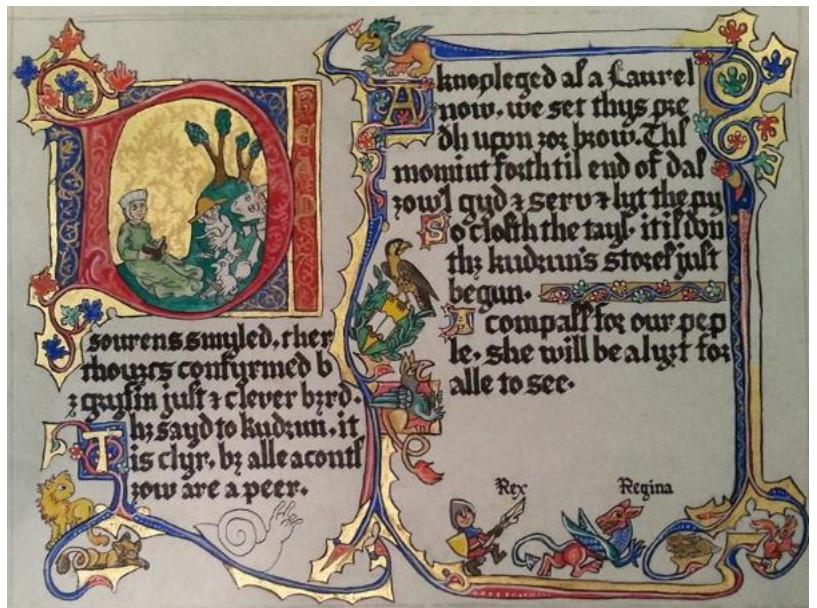 D
sovrens smyled, ther
thowȝts confyrmed b
ȝ gryfin just ⁊ clever byrd.
Thȝ sayd to kudrun, it
is clyr. bȝ alle acontſ
ȝow are a peer.
Aknoƿleged aſ a Laurel
now, we set thys ƿre
dh upon ȝor brow. Thſ
momint forth til end of daſ
ȝow'l gyd ⁊ serv ⁊ lyt the ƿy
So closth the tayl. it iſ don
thȝ kudrun's storeſ just
begun.
A compaſſ for our pep
le. she will be a lyȝt for
alle to see.
Rex Regina